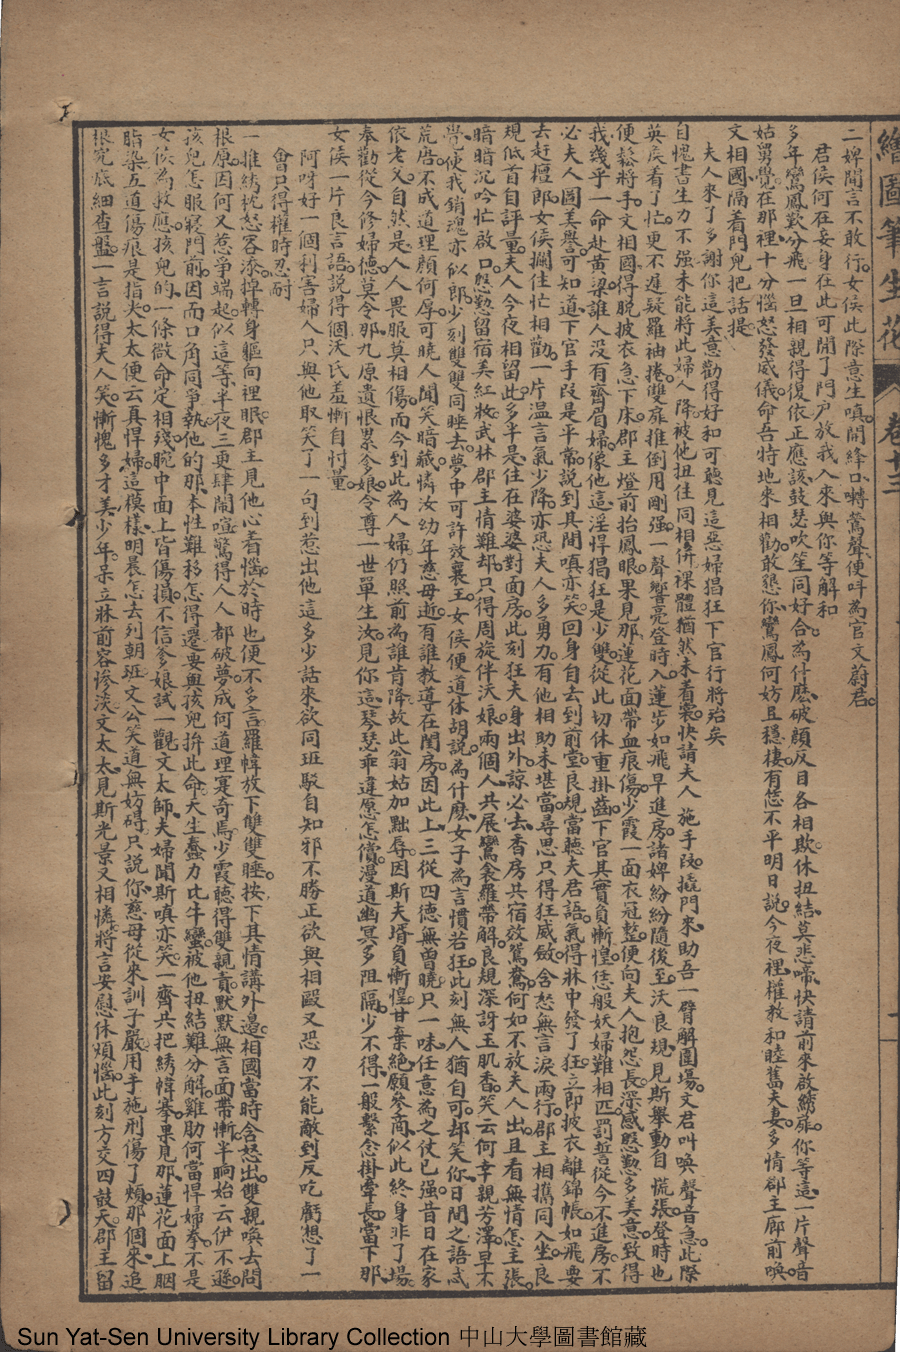 繪圖筆生花 卷十三
二婢聞言不敢行。女侯此際意生嗔。開絳口。囀鶯聲。便叫為官文蔚君。
君侯何在妾身在此可開了門戶放我入來與你等解和
多年鸞鳳歎分飛。一旦相親得復依。正應該鼓瑟吹笙同好合。為什麽破顏反目各相欺。休扭結。莫悲啼。快請前來啟綉扉。你等這一片聲音
姑舅覺。在那裡十分惱怒發威儀。命吾特地來相勸。敢懇你鸞鳳何妨且穩棲。有恁不平明日說。今夜裡權教和睦舊夫妻。多情郤主廊前喚。
文相國隔着門兒把話提。
夫人來了多謝你這美意勸得好和可聽見這惡婦猖狂下官行將殆矣
自愧書生力不强。未能將此婦人降。被他扭住同相併。裸體猶然未着裳。快請夫人施手段。撬門來助吾一臂解圍場。文君叫喚聲音急。此際
英矦着了忙。更不遲疑羅袖捲。雙扉推倒用剛强。一聲響亮登時入。蓮步如飛早進房。諸婢紛紛隨後至。沃良規一見斯舉動自慌張。登時也
便鬆將手。文相國得脫披衣急下床。郡主燈前抬鳳眼。果見那蓮花面帶血痕傷。少霞一面衣冠整。便向夫人抱怨長。深感慇懃多美意。致得
我幾乎一命赴黃粱。誰人沒有齊眉婦。像他這淫悍猖狂是少雙。從此切休重掛齒。下官其實負慚惶。恁般妖婦難相匹。罰誓從今不進房。不
必夫人圖美譽。可知道下官手段是平常。說到其間嗔亦笑。回身自去到前堂。良規當聽夫君語。氣得牀中發了狂。立即披衣離錦帳。如飛要
去赶檀郎。女侯攔住忙相勸。一片温言氣少降。亦恐夫人多勇力。有他相助未堪當。尋思只得狂威斂。含愁無言淚兩行。郡主相攜同入坐。良
規低首自評量。夫人今夜相留此。多半是住在婆婆對面房。此刻狂夫身出外。諒必去香房共宿效鴛鴦。何如不放夫人出。且看無情怎主張。
暗暗沉吟忙啟口。慇懃留宿美紅妝。武林郡主情難却。只得周旋伴沃娘。兩個人共展鸞衾羅帶解。良規深訝玉肌香。笑云何幸親芳澤。早不
覺便我銷魂亦似郎。少刻雙雙同睡去。夢中可許效襄王。女侯便道休胡說。為什麽女子為言慣若狂。此刻無人猶自可。却笑你日間之語忒
荒唐。不成道理顏何厚。可曉人聞笑暗藏。憐汝幼年慈母逝。有誰教導在閨房。因此上三從四德無曾曉。只一味任意為之仗已强。昔日在家
依老父。自然是人人畏服莫相傷。而今到此為人婦。仍照前為誰肯降。故此翁姑加黜辱。因斯夫壻負慚惶。甘棄絶。願參商。似此終身非了塲。
奉勸從今修婦德。莫令那九原遺恨累令娘。令尊一世單生汝。見你這琴瑟乖違愿怎償。漫道幽冥多阻隔。少不得一般繫念掛牽長。當下那
女侯一片良言語。說得個沃氏羞慚自忖量。
阿呀好一個利害婦人只與他取笑了一句到惹出他這多少話來欲同班駁自知邪不勝正欲與相毆又恐力不能敵到反吃虧想了一
會只得權時忍耐
一推綉枕怒容添。掉轉身軀向裡眠。郡主見他心着惱。於時也便不多言。羅幃放下雙雙睡。按下其情講外邊。相國當時含怒出。雙親喚去問
根原。因何又惹爭端起。似這等半夜三更肆閙喧。驚得人人都破夢。成何道理寔奇焉。少霞聽得雙親責。默默無言面帶慚。半晌始云伊不遜。
孩兒怎服寢門前。因而口角同爭執。他的那本性難移怎得遷。要與孩兒拚此命。天生蠢力比牛蠻。被他扭結難分解。雞肋何當悍婦拳。不是
女侯為救應。孩兒的一條微命定相殘。腕中面上皆傷損。不信爹娘試一觀。文太師夫婦聞斯嗔亦笑。一齊共把綉幃搴。果見那蓮花面上胭
脂染。五道傷痕是指尖。太太便云真悍婦。這模樣明晨怎去列朝班。文公笑道無妨碍。只說你慈母從來訓子嚴。用手施刑傷了頰。那個來追
根究底細查盤。一言說得夫人笑。慚愧多才美少年。呆立牀前容慘淡。文太太見斯光景又相憐。將言安慰休煩惱。此刻方交四鼓天。郡主留
Sun Yat-Sen University Library Collection 中山大學圖書館藏